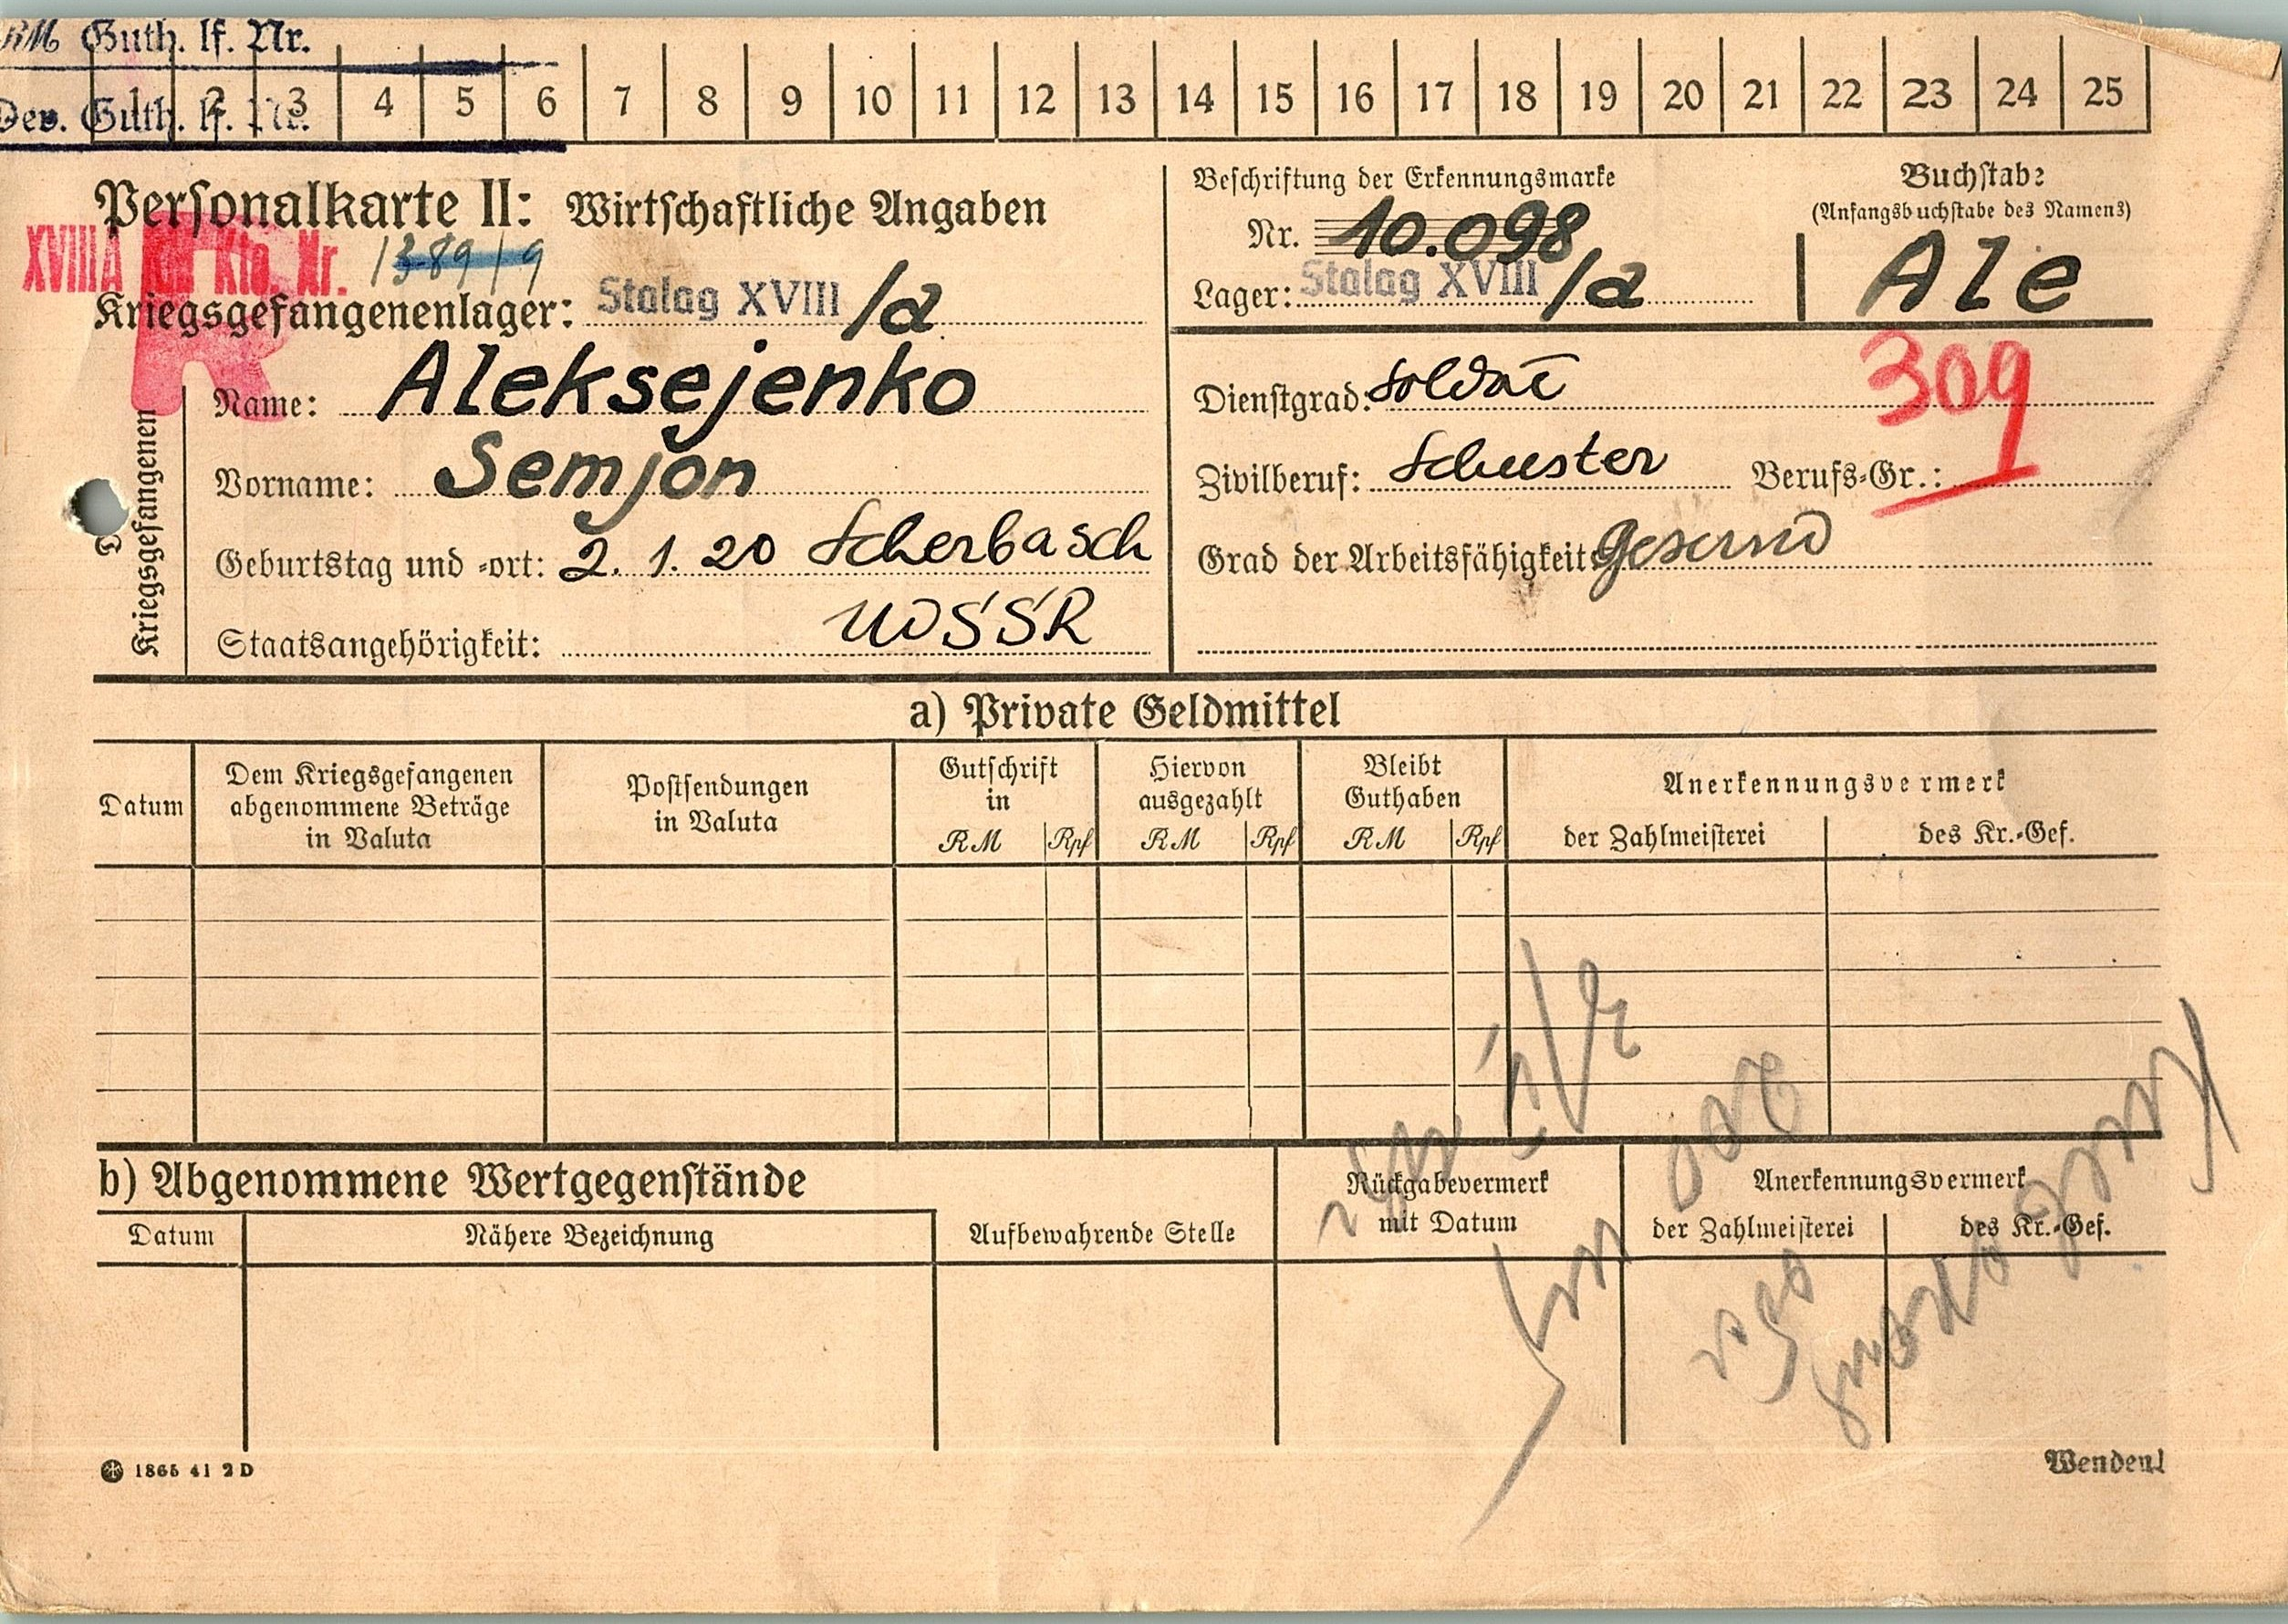 RM Guth. lf. Nr.
Dev. Guth. lf. Nr.
1 2 3 4 5 6 7 8 9 10 11 12 13 14 15 16 17 18 19 20 21 22 23 24 25
Personalkarte II: Wirtschaftliche Angaben
XVIIIA Kto. Nr. 1389/9
R
Kriegsgefangenenlager: Stalag XVIII/a
Beschriftung der Erkennungsmarke
Nr. 10.098
Lager: Stalag XVIII/a
Buchstabe
(Anfangsbuchstabe des Namens)
Ale
Kriegsgefangenen
Name: Aleksejenko
Vorname: Semjon
Geburtstag und -ort: 2. 1. 20 Scherbasch
Staatsangehörigkeit: UdSSR
Dienstgrad: Soldat
309
Zivilberuf: Schuster Berufs-Gr.:
Grad der Arbeitsfähigkeit: Gesund
a) Private Geldmittel
Datum
Dem Kriegsgefangenen
abgenommene Beträge
in Valuta
Postsendungen
in Valuta
Gutschrift
in
RM Rpf
Hiervon
ausgezahlt
RM Rpf
Bleibt
Guthaben
RM Rpf
Anerkennungsvermerk
der Zahlmeisterei des Kr.-Gef.
b) Abgenommene Wertgegenstände
Datum Nähere Bezeichnung
Aufbewahrende Stelle
Rückgabevermerk
mit Datum
Anerkennungsvermerk
der Zahlmeisterei des Kr.-Gef.
1865 41 2 D
Wenden!